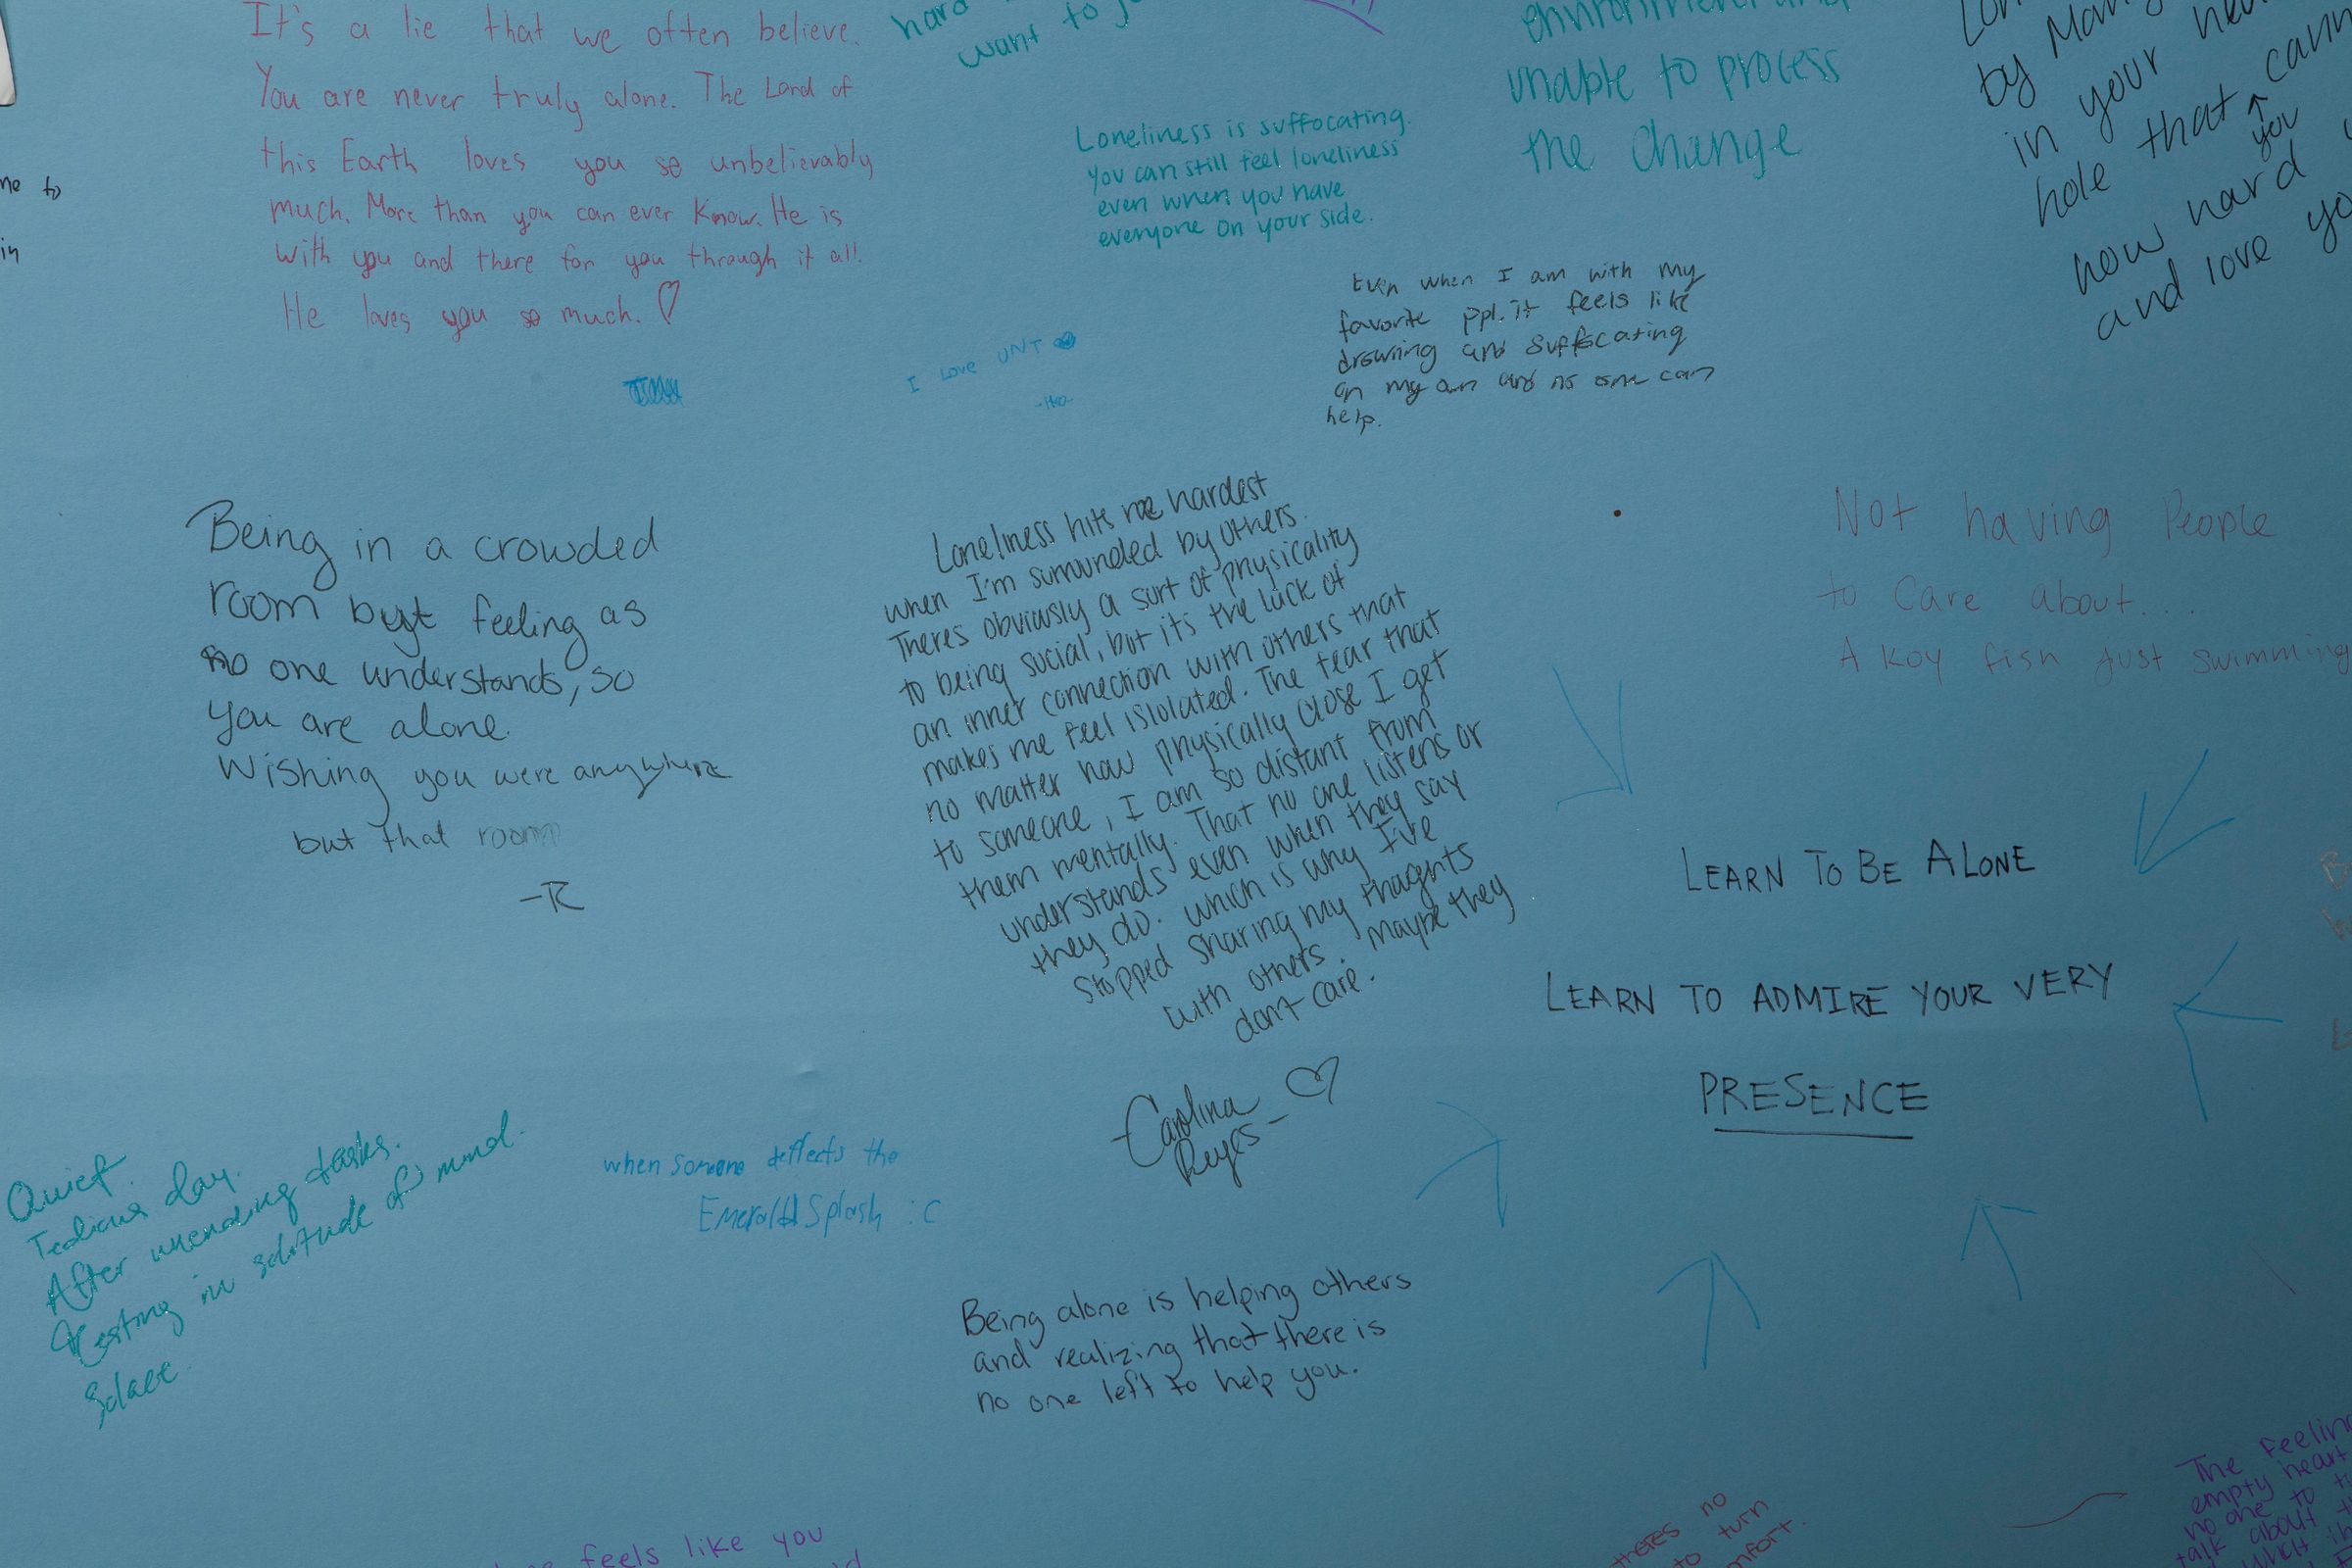 It's a lie that we often believe.
You are never truly alone. The Lord of
this Earth loves you so unbelievably
much. More than you can ever know. He is
with you and there for you through it all.
He loves you so much.
me to
in
hard
want to
unable to process
the change
Loneliness is suffocating.
you can still feel loneliness
even when you have
everyone on your side.
by
in your
hole that you
how hard
and love
Even when I am with my
favorite ppl. it feels like
drowning and suffocating
on my own and no one can
help.
I love UNT
Being in a crowded
room but feeling as
no one understands, so
you are alone.
Wishing you were anywhere
but that room
-R
Loneliness hits me hardest
when I'm surrounded by others.
Theres obviously a sort of physicality
to being social, but its the lack of
an inner connection with others that
makes me feel islolated. The fear that
no matter how physically close I get
to someone, I am so distant from
them mentally. That no one listens or
understands even when they say
they do. which is why I've
stopped sharing my thoughts
with others. Maybe they
dont care.
-Carolina
Reyes-
Not having People
to Care about...
A koy fish just swimming
LEARN TO BE ALONE
LEARN TO ADMIRE YOUR VERY
PRESENCE
Quiet.
Tedious day.
After unending tasks.
Resting in solitude of mind.
Solace.
when someone deflects the
Emerald Splash :c
Being alone is helping others
and realizing that there is
no one left to help you.
feels like you
theres no
to turn
The feeling
empty heart
no one to
talk about